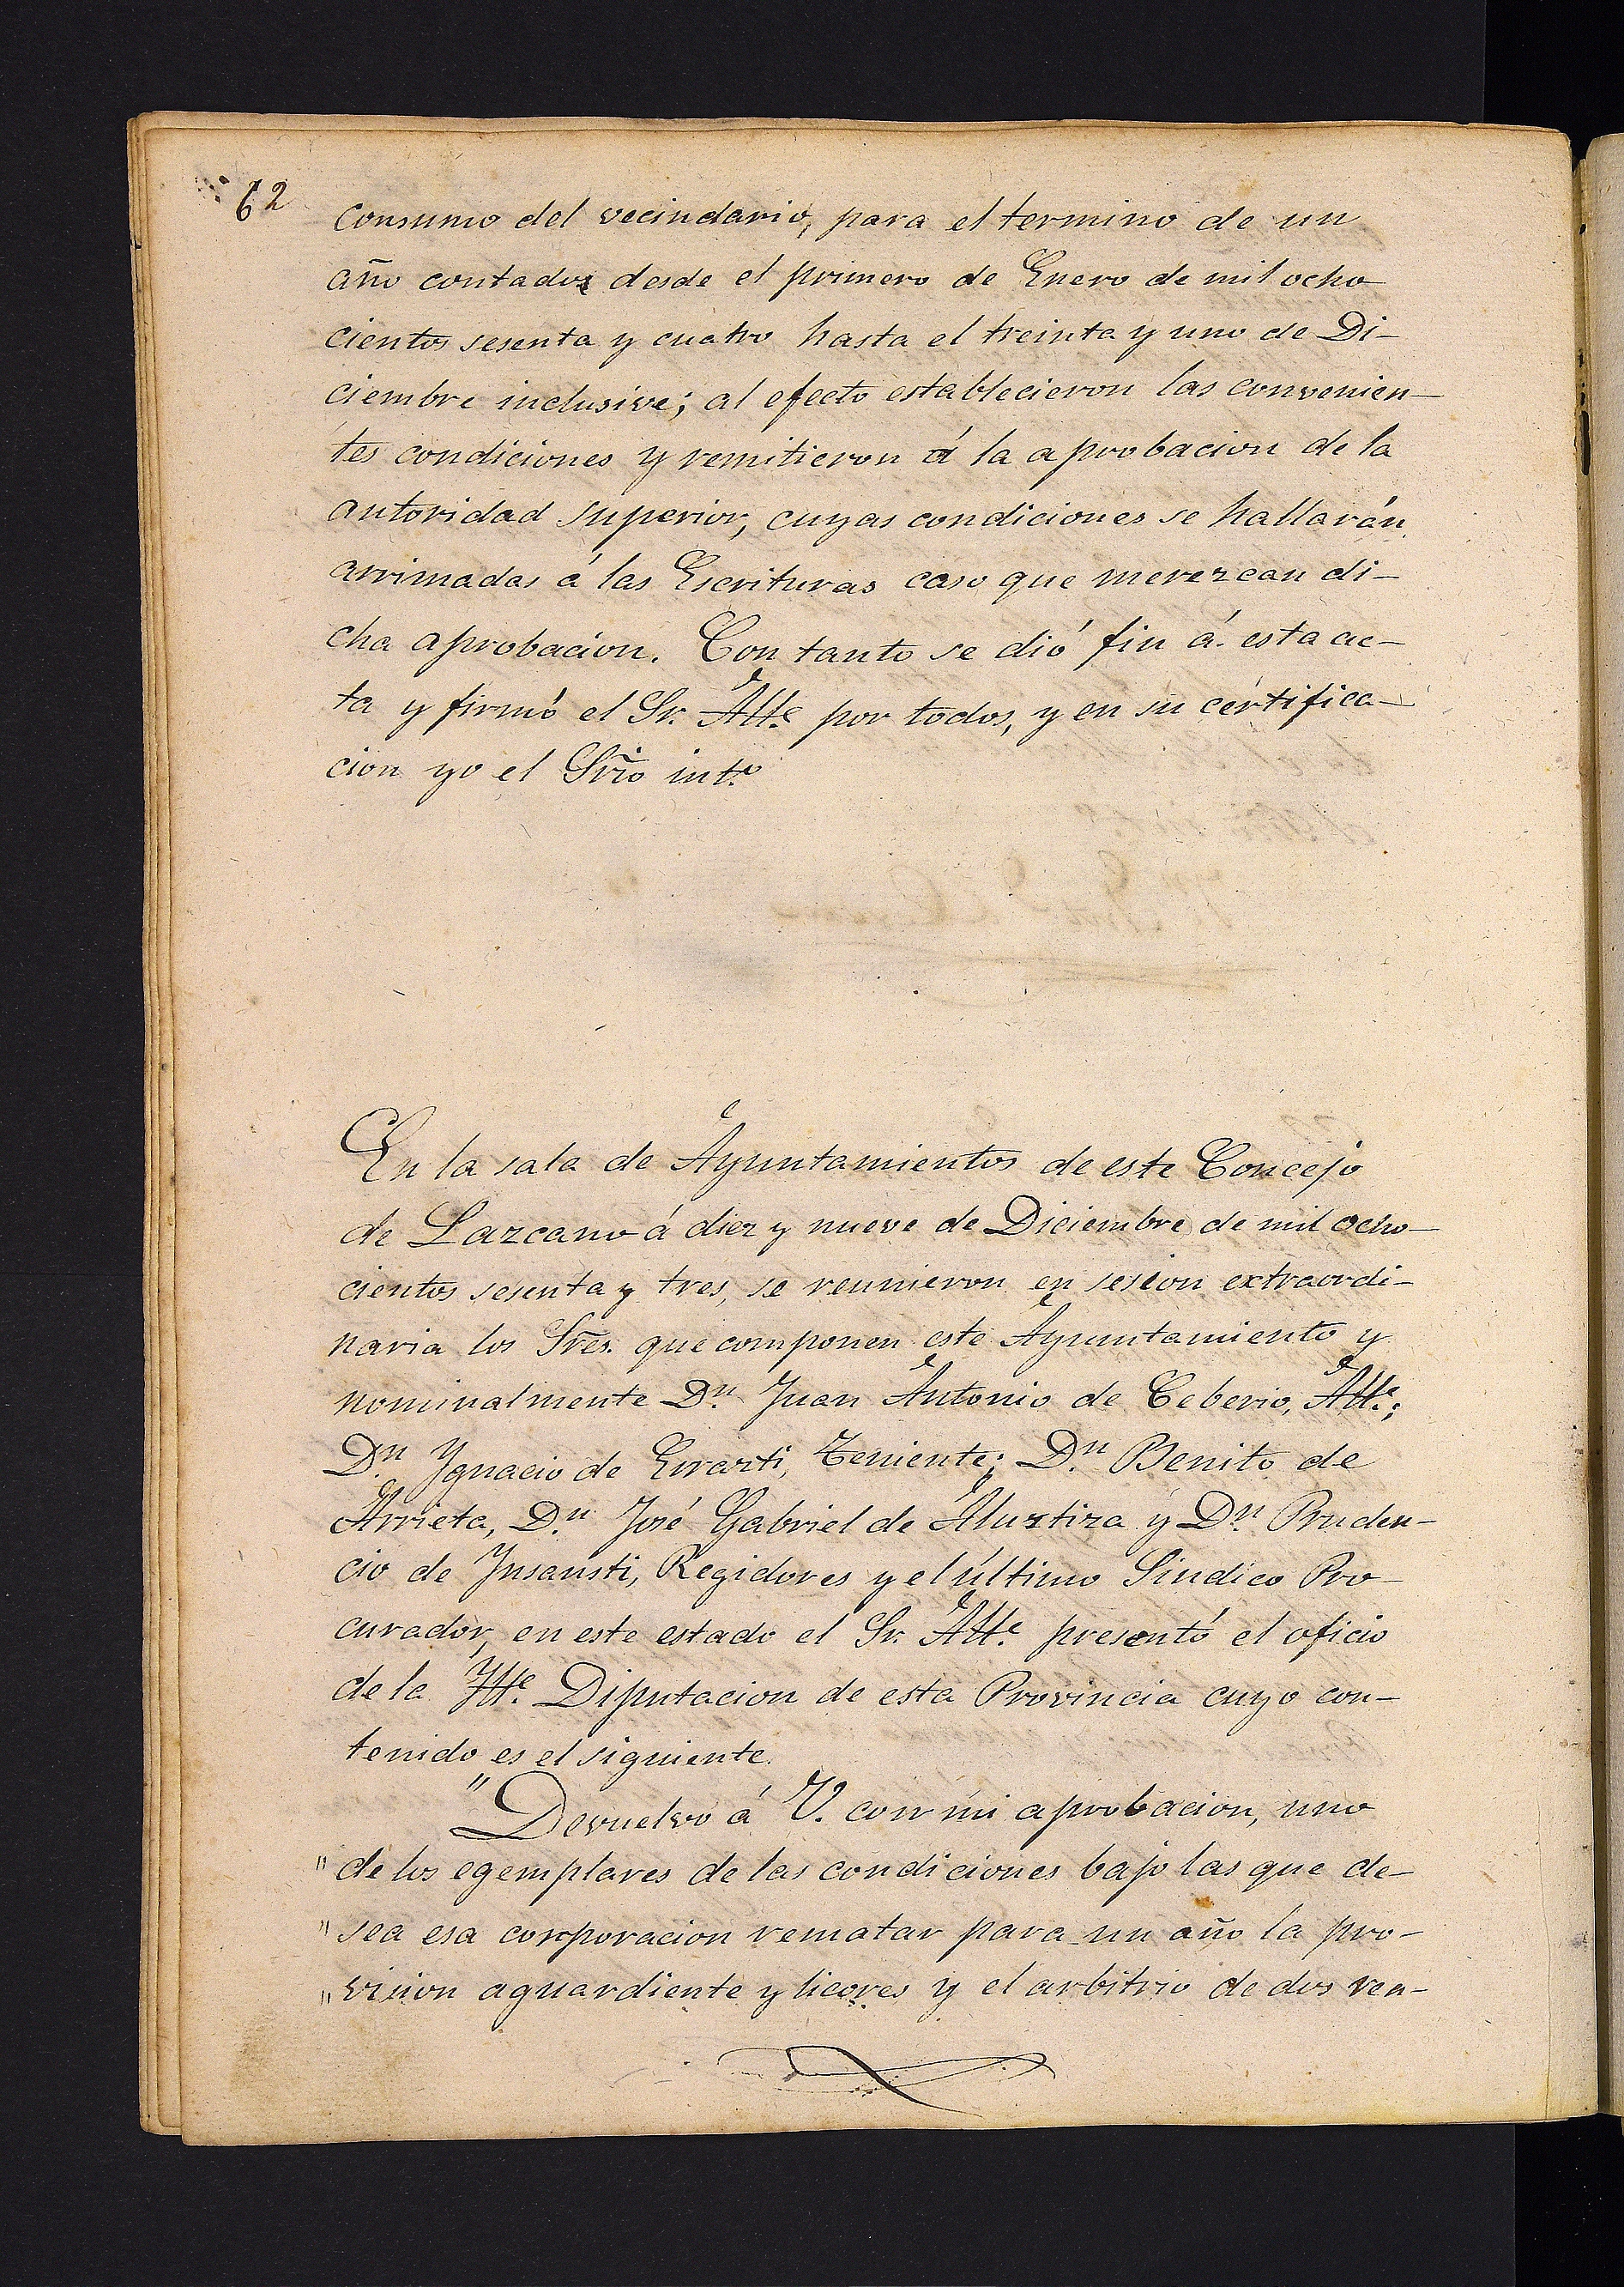 62
consumo del vecindario, para el termino de un
año contados desde el primero de Enero de mil ocho
cientos sesenta y cuatro hasta el treinta y uno de Di-
ciembre inclusive; al efecto establecieron las convenien-
tes condiciones y remitieron á la aprobacion de la
autoridad superior, cuyas condiciones se hallarán
arrimadas á las Escrituras caso que merezcan di-
cha aprobacion. Con tanto se dió fin á esta ac-
ta y firmó el Sr. Alle. por todos, y en su certifica-
cion yo el Srio int.º
En la sala de Ayuntamientos de este Concejo
de Lazcano á diez y nueve de Diciembre de mil ocho-
cientos sesenta y tres, se reunieron en sesion extraordi-
naria los Sres. que componen este Ayuntamiento y
nominalmente D.n Juan Antonio de Ceberio, Alle.;
D.n Ygnacio de Errazti, Teniente; D.n Benito de
Arrieta, D.n José Gabriel de Aluztiza y D.n Pruden-
cio de Ynsausti, Regidores y el último Sindico Pro-
curador, en este estado el Sr. Alle. presentó el oficio
de la Ylle. Diputacion de esta Provincia cuyo con-
tenido es el siguiente.
"Devuelvo á V. con mi aprobacion, uno
" de los egemplares de las condiciones bajo las que de-
" sea esa corporacion rematar para un año la pro-
" vision aguardiente y licores y el arbitrio de dos rea-